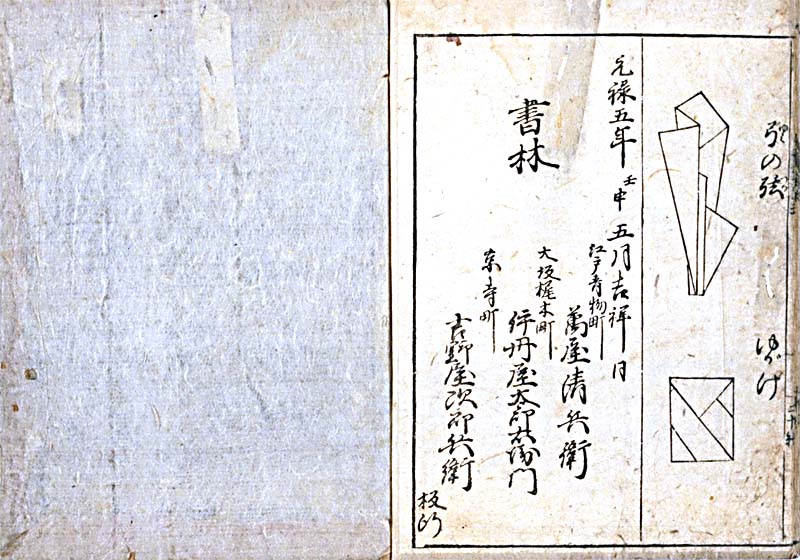 弓の弦
ゆがけ
元禄五年壬申五月吉祥日
書林
江戸青物町
萬屋清兵衛
大坂梶木町
伊丹屋太郎右衛門
京寺町
吉野屋次郎兵衛
板行